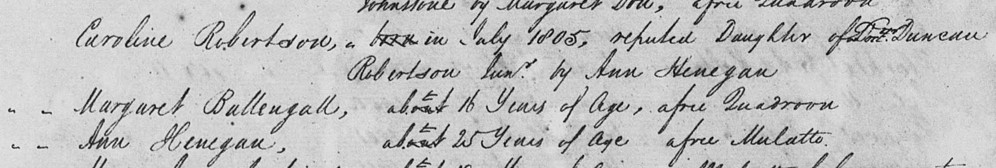 Johnstone by Margaret Don, afree Quadroon
Caroline Robertson, " born in July 1805, reputed Daughter of Duncan
Robertson Junr. by Ann Henegan
" " Margaret Ballengall, about 16 Years of Age, afree Quadroon
" " Ann Henegan, about 25 Years of Age afree Mulatto.